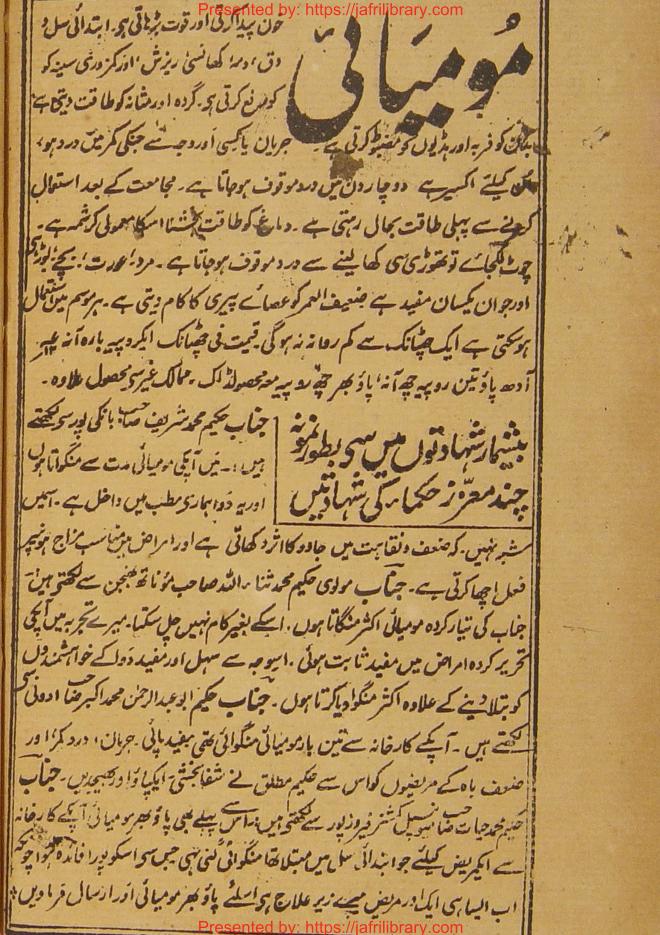 Presented by: https://jafrilibrary.com
مومیائی
خون پیدا کرتی اور قوت بڑہاتی ہی۔ ابتدائی سل و
دق، دمہ، کھانسی، ریزش، اور کمزوری سینہ کو
رفع کرتی ہی۔ گردہ اور مثانہ کو طاقت دیتی ہے
بدن کو فربہ اور ہڈیوں کو مضبوط کرتی ہے۔ جریان یا کسی اور وجہ سے جنکی کمر میں درد ہو،
ان کیلئے اکسیر ہے دو چار دن میں درد موقوف ہو جاتا ہے۔ مجامعت کے بعد استعمال
کرنے سے پہلی طاقت بحال رہتی ہے۔ دماغ کو طاقت بخشنا اسکا معمولی کرشمہ ہے۔
چوٹ لگجائے تو تھوڑی سی کھا لینے سے درد موقوف ہو جاتا ہے۔ مرد، عورت، بچے، بوڑہے
اور جوان یکسان مفید ہے ضعیف العمر کو عصائے پیری کا کام دیتی ہے۔ ہر موسم میں استعمال
ہو سکتی ہے ایک چھٹانک سے کم روانہ نہ ہو گی۔ قیمت فی چھٹانک ایکروپیہ بارہ آنہ
آدھ پاؤ تین روپیہ چھ آنہ، پاؤ بھر چھ روپیہ معہ محصولڈاک۔ ممالک غیر سی محصول علاوہ۔
بیشمار شہادتوں میں سی بطور نمونہ
چند معزز حکماء کی شہادتیں
جناب حکیم محمد شریف صاحب بانکی پور سی لکھتے
ہیں:۔ میں آپکی مومیائی مدت سے منگواتا ہوں
اور یہ دوا ہماری مطب میں داخل ہے۔ اسمیں
شبہ نہیں، کہ ضعف و نقاہت میں جادو کا اثر دکھاتی ہے اور امراض میں مناسب مزاج ہونیپر
فعل اچھا کرتی ہے۔ جناب مولوی حکیم محمد ثناء اللہ صاحب مؤناتھ بھنجن سے لکھتی ہیں
جناب کی تیار کردہ مومیائی اکثر منگاتا ہوں۔ اسکے بغیر کام نہیں چل سکتا۔ میرے تجربہ میں آپکی
تحریر کردہ امراض میں مفید ثابت ہوئی۔ اسیوجہ سے سہل اور مفید دوا کے خواہشمندوں
کو بتلا دینے کے علاوہ اکثر منگوا دیا کرتا ہوں۔ جناب حکیم ابو عبدالرحمٰن محمد اکبر صاحب ادونی سی
لکھتے ہیں۔ آپکے کارخانہ سے تین بار مومیائی منگوائی تھی مفید پائی۔ جریان، درد کمر، اور
ضعف باہ کے مریضوں کو اس سے حکیم مطلق نے شفا بخشی۔ ایکپاؤ اور بھیجدیں۔ جناب
حکیم محمد حیات صاحب میونسپل کمشنر فیروزپور سے لکھتی ہیں: اس سے پہلے بھی پاؤ بھر مومیائی آپکے کارخانہ
سے ایکمریض کیلئے جو ابتدائی سل میں مبتلا تھا منگوائی گئی تہی جس سی اسکو پورا فائدہ ہوا چونکہ
اب ایسا ہی ایک اور مریض میرے زیر علاج ہی اسلئے پاؤ بھر مومیائی اور ارسال فرماویں
Presented by: https://jafrilibrary.com